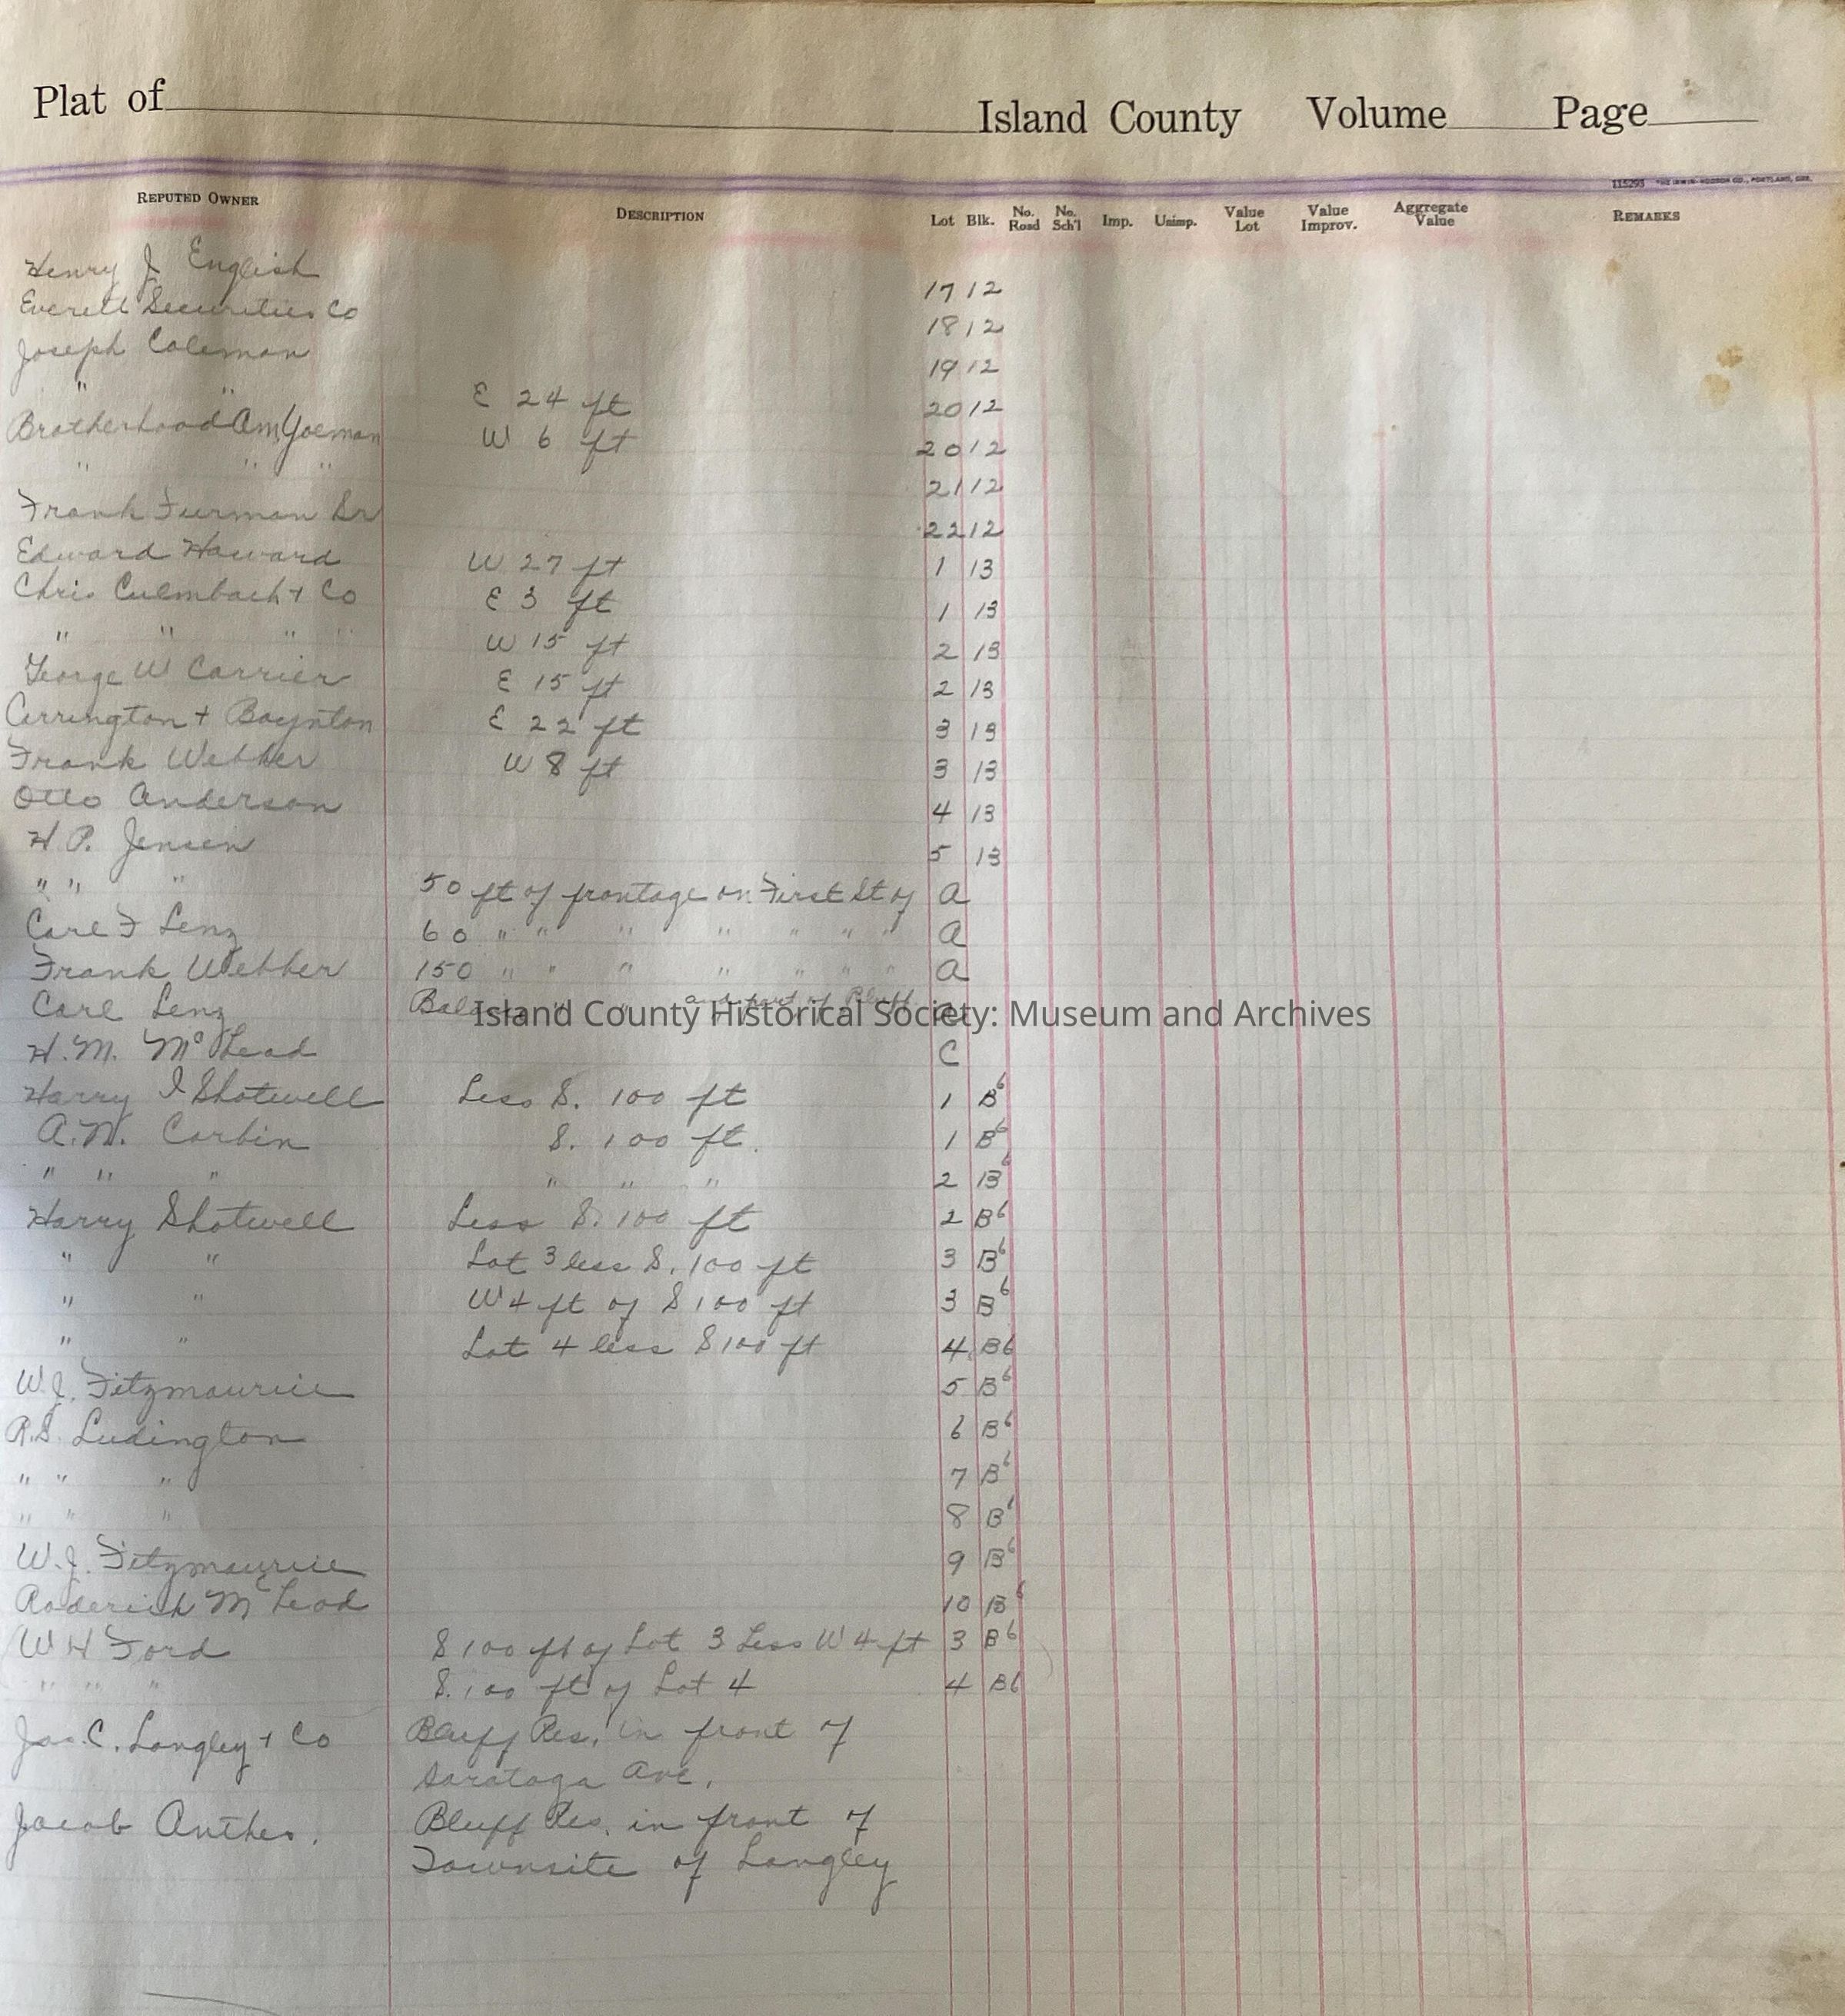 Plat of Island County Volume Page
115293 THE IRWIN-HODSON CO., PORTLAND, ORE.
REPUTED OWNER DESCRIPTION Lot Blk. No. Road No. Sch'l Imp. Unimp. Value Lot Value Improv. Aggregate Value REMARKS
Henry J English 17 12
Everett Securities Co 18 12
Joseph Coleman 19 12
" " E 24 ft 20 12
Brotherhood Am, Yoeman W 6 ft 20 12
" " " 21 12
Frank Furman Sr 22 12
Edward Howard W 27 ft 1 13
Chris Culmbach + Co E 3 ft 1 13
" " " " W 15 ft 2 13
George W Carrier E 15 ft 2 13
Arrington + Boynton E 22 ft 3 13
Frank Webber W 8 ft 3 13
Otto Anderson 4 13
H P. Jensen 5 13
" " " 50 ft of frontage on First St of A
Carl F Lenz 60 " " " " " " " A
Frank Webber 150 " " " " " " " A
Carl Lenz " " and part of Bluff
Island County Historical Society: Museum and Archives
H. M. McLeod C
Harry I Shotwell Less S. 100 ft 1 B6
A. N. Corbin S. 100 ft. 1 B6
" " " " " " 2 B6
Harry Shotwell Less S. 100 ft 2 B6
" " Lot 3 less S. 100 ft 3 B6
" " W 4 ft of S 100 ft 3 B6
" " Lot 4 less S 100 ft 4 B6
W. J. Fitzmaurice 5 B6
R. S. Ludington 6 B6
" " " 7 B6
" " " 8 B6
W. J. Fitzmaurice 9 B6
Roderick McLeod 10 B6
W H Ford S 100 ft of Lot 3 Less W 4 ft 3 B6
" " " S. 100 ft of Lot 4 4 B6
Jas. C. Langley + Co Bluff Res. in front of
Saratoga Ave.
Jacob Anthes. Bluff Res. in front of
Townsite of Langley